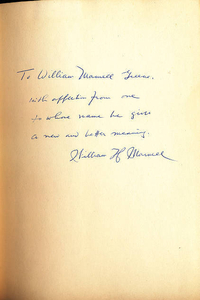 To William Maxwell Greene,
with affection from one
to whose name he gave
a new and better meaning.
William H Maxwell